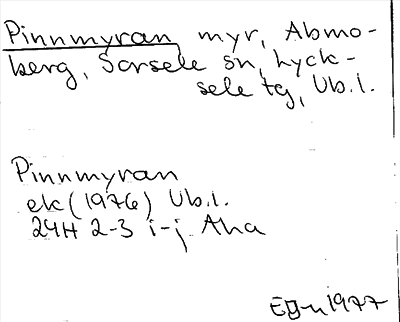 Pinnmyran myr, Abmo-
berg, Sorsele sn, Lyck-
sele tg, Vb.l.
Pinnmyran
ek (1976) Vb.l.
24H 2-3 i-j Aha
1977